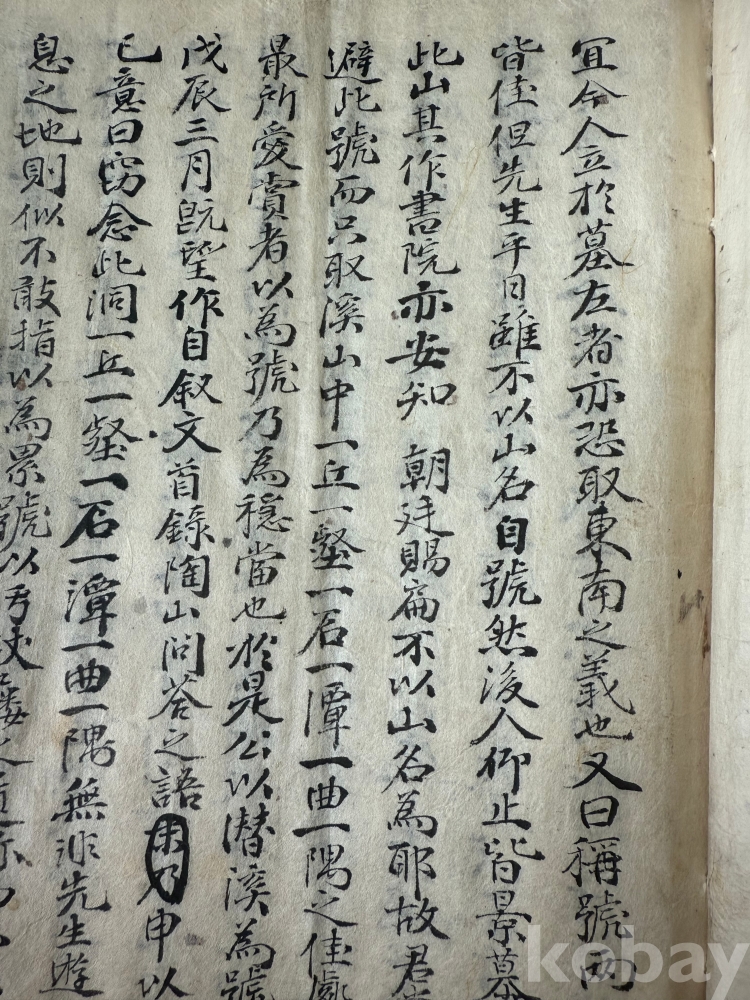 宜令人立於墓左者亦恐取東南之義也又曰稱號兩
皆佳但先生平日雖不以山名自號然後人仰止皆景慕
此山其作書院亦安知 朝廷賜扁不以山名為耶故君
避此號而只取溪山中一丘一壑一石一潭一曲一隅之佳處
最所愛賞者以為號乃為穩當也於是公以潛溪為號
戊辰三月旣望作自叙文首錄陶山問答之語末乃申以
已意曰窃念此洞一丘一壑一石一潭一曲一隅無非先生遊
息之地則似不敢指以為累號以
kobay